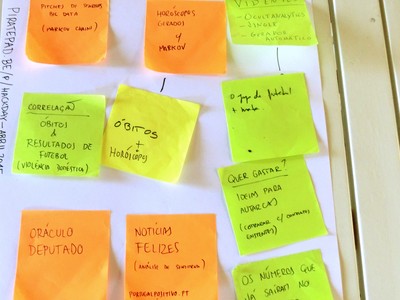 PIRATEPAD.BE/P/HACKDAY-ABRIL
PITCHES DE
POR DATA
(MARKOV CHAIN)
HORÓSCOPOS
CRUZADOS
Y
MARKOV
VIDENTES
- JINGLE
- GERADOR
AUTOMÁTICO
CORRELAÇÃO
ÓBITOS
&
RESULTADOS
DE
FUTEBOL
(VIOLÊNCIA DOMÉSTICA)
ÓBITOS
+
HORÓSCOPOS
O jogo de futebol
+
QUER GASTAR?
IDEIAS PARA
AUTARCAS
(COMPARAR C/ CONTRATOS
ORÁCULO
DEPUTADO
NOTÍCIAS
FELIZES
(ANÁLISE DE SENTIMENTO)
PORTUGALPOSITIVO.PT
OS NÚMEROS QUE
JÁ SAÍRAM NO